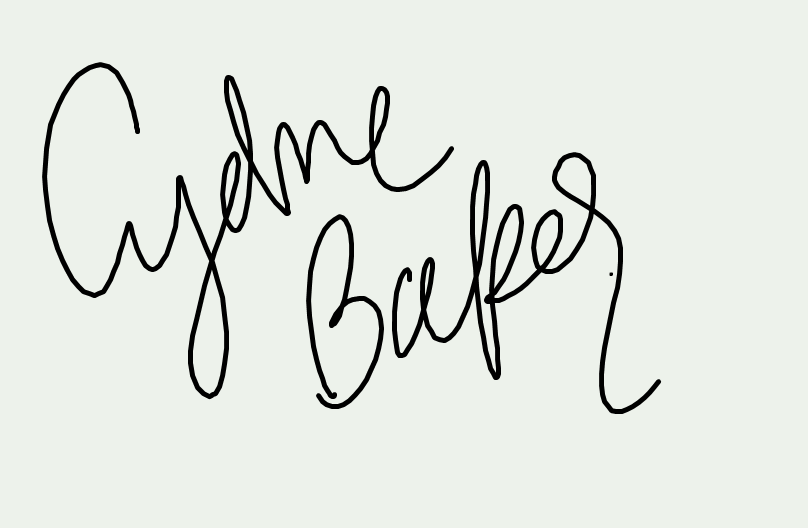 Cydne
Baker